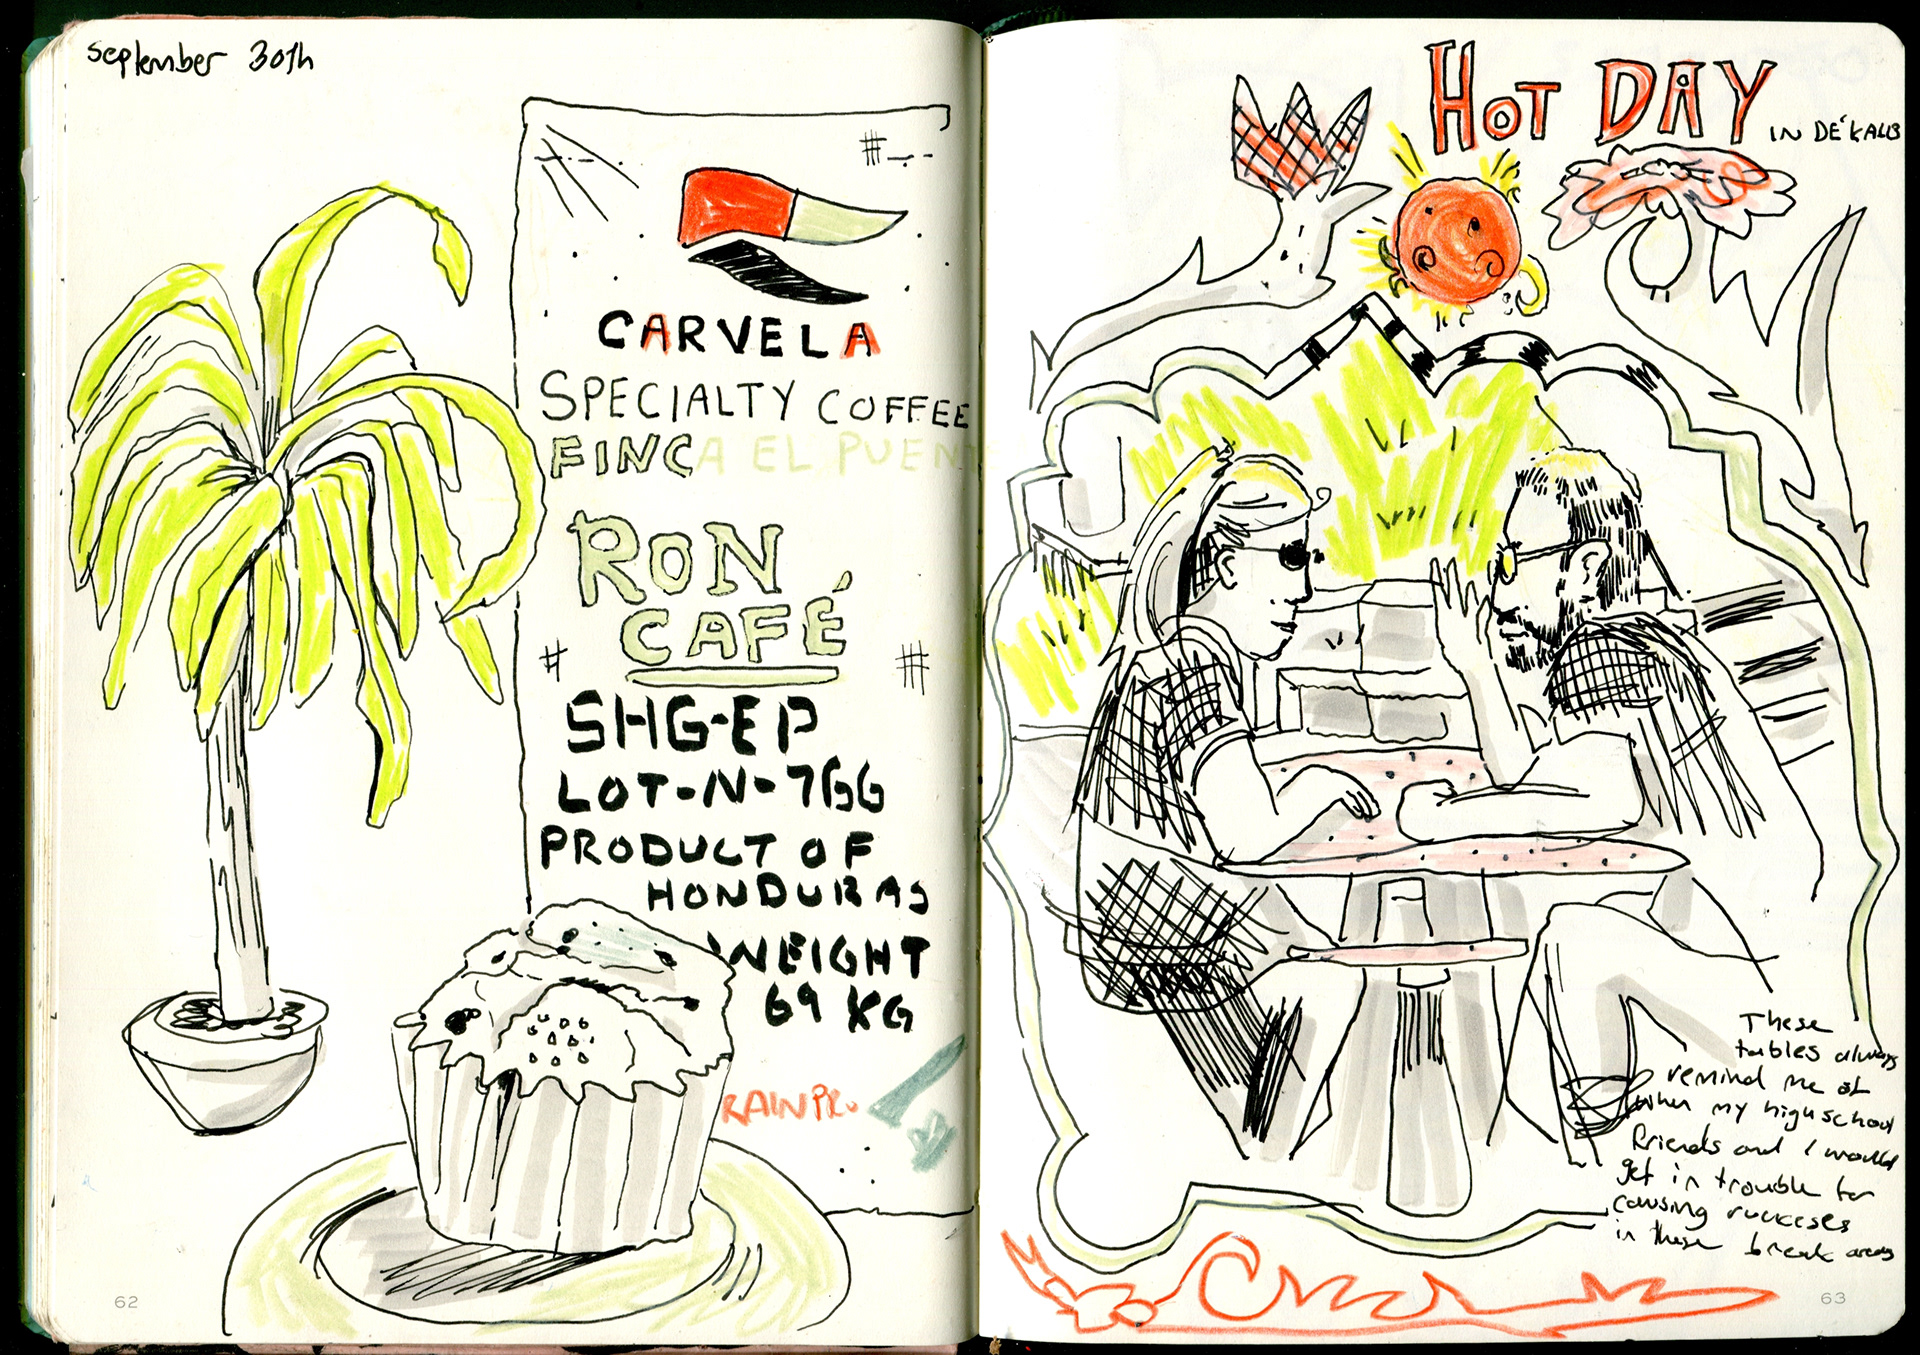 September 30th
CARVELA
SPECIALTY COFFEE
FINCA EL PUEN
RON
CAFÉ
SHG-EP
LOT-N-766
PRODUCT OF
HONDURAS
WEIGHT
69 KG
RAINPRO
62
HOT DAY
IN DE'KALB
These
tables always
remind me of
when my highschool
friends and I would
get in trouble for
causing ruckuses
in these break areas
63